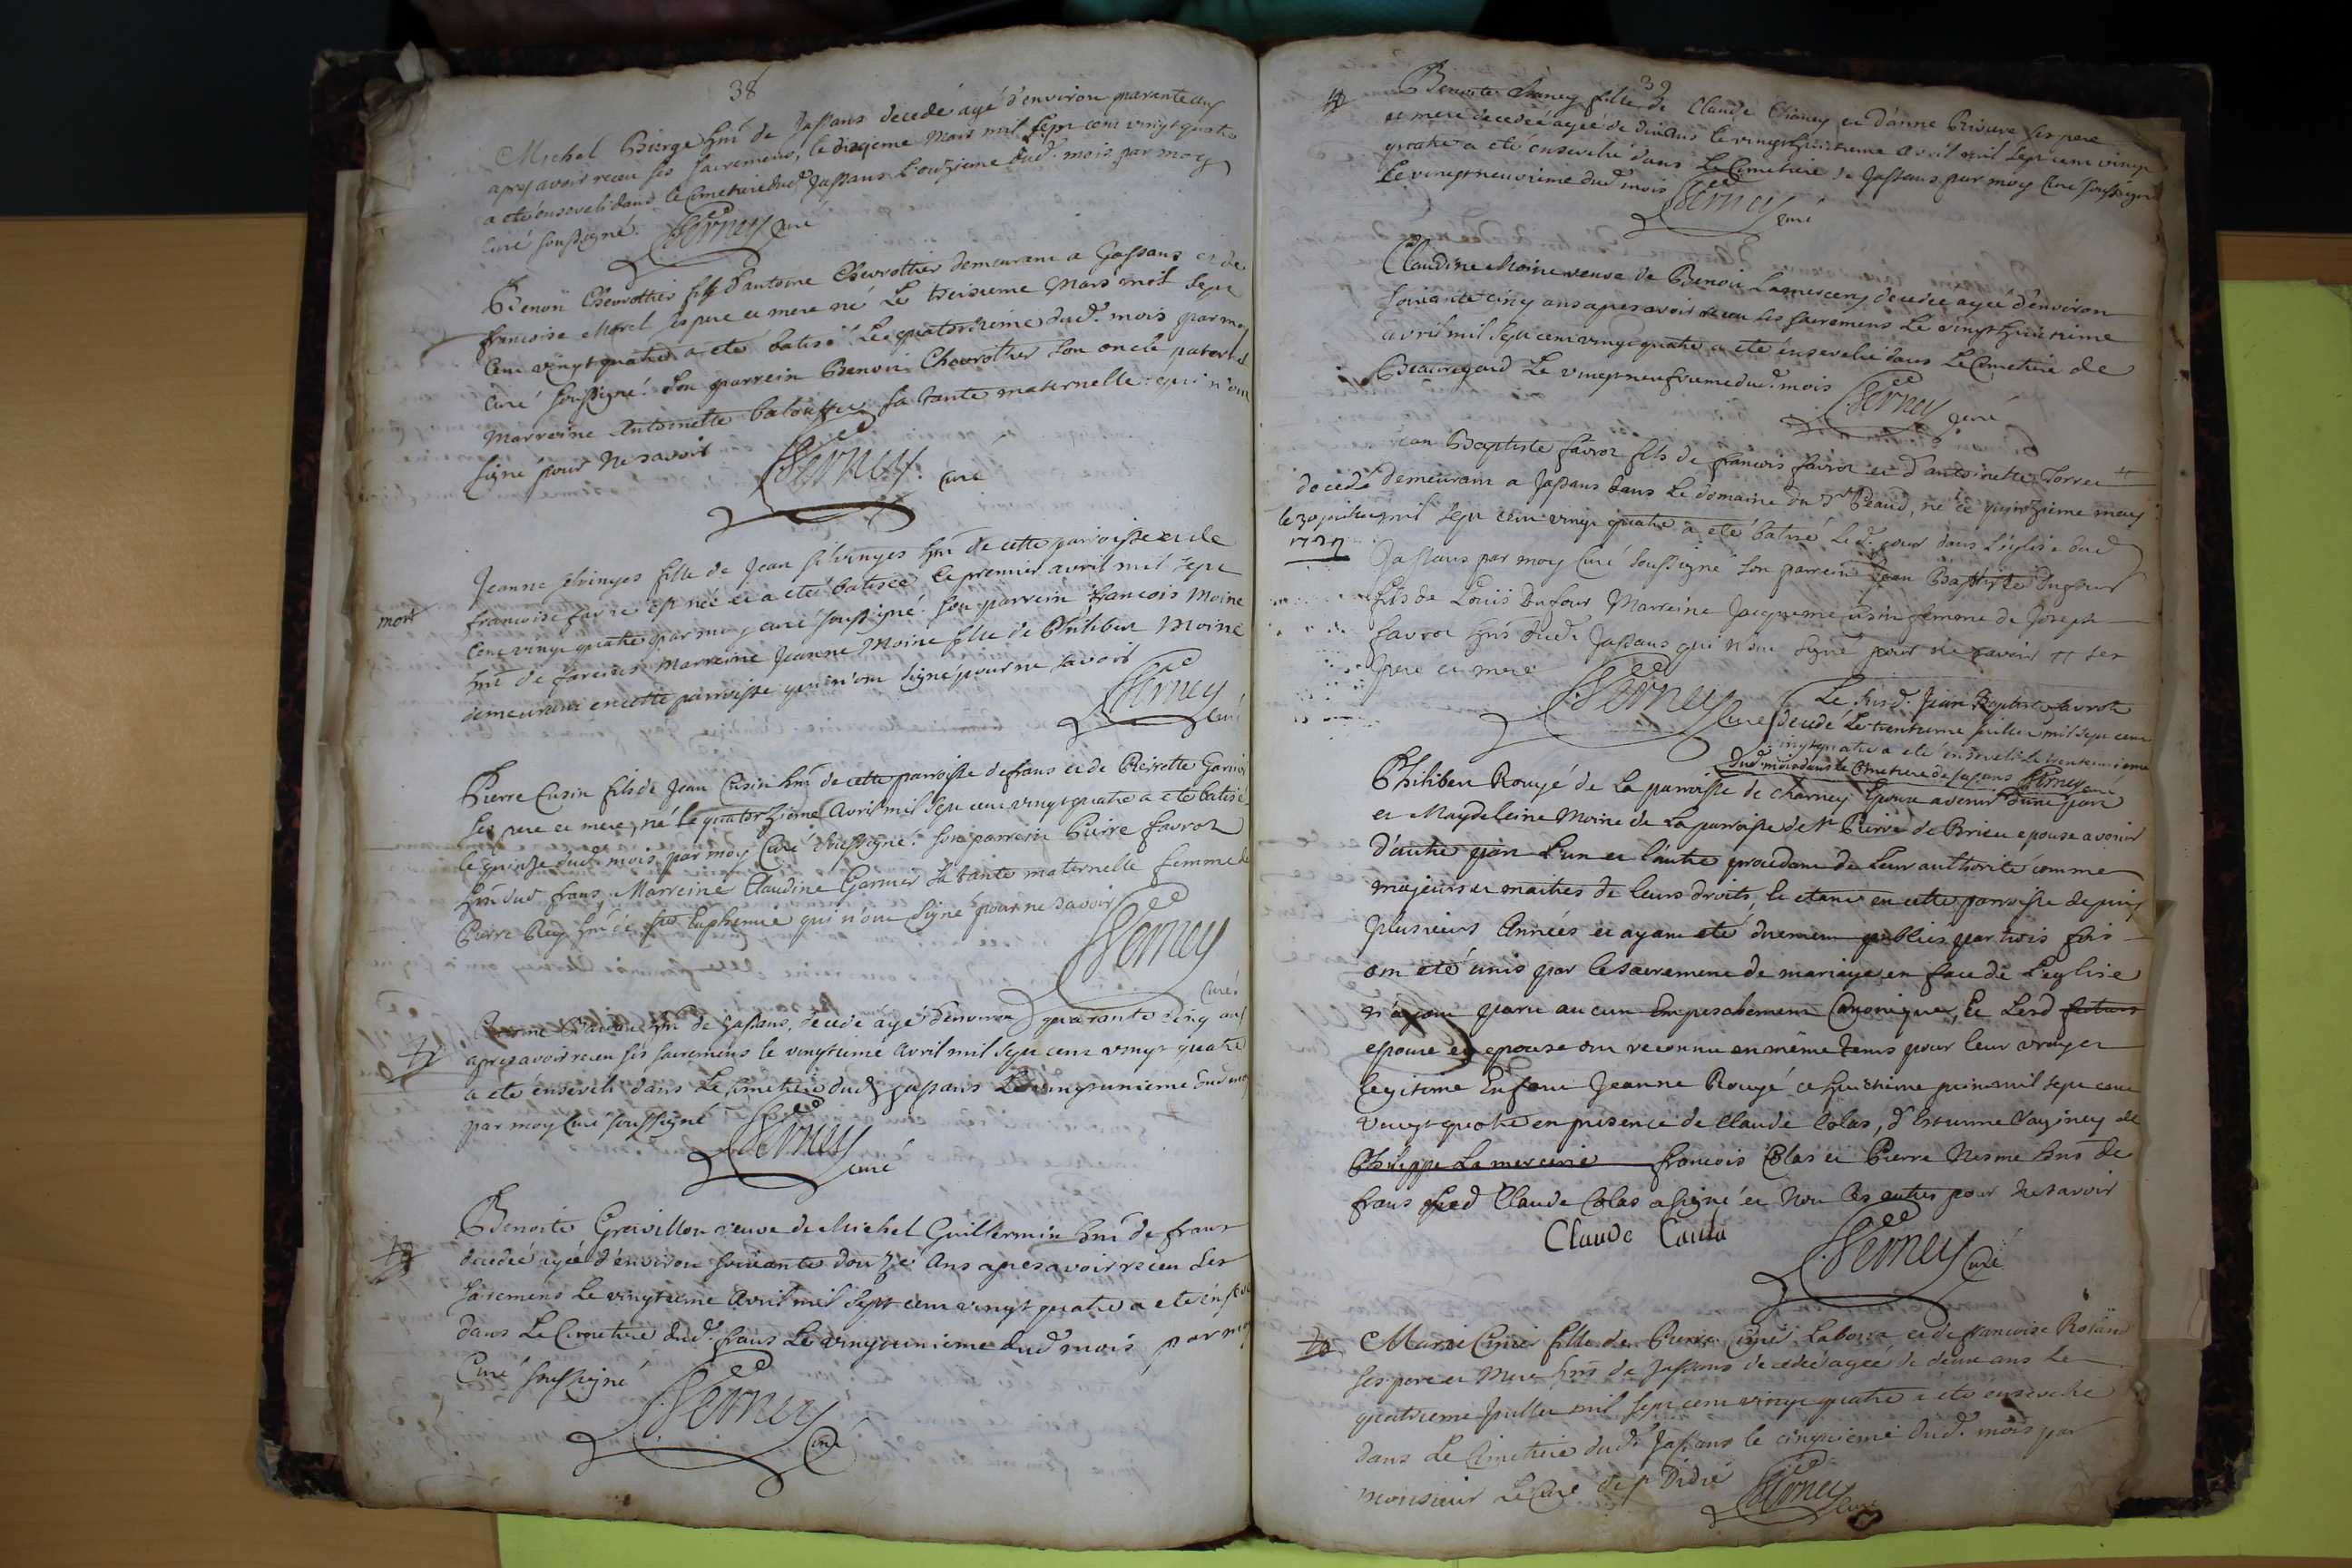 38
Michel Bierge hnt de Jassans decedé agé d'environ quarante ans
apres avoir receu ses sacremens, le dixieme Mars mil sept cent vingt quatre
a eté enseveli dans le Cimetiere dud. Jassans L'onzieme dud. mois par moy
Curé soussigné. Perney curé
Benoit Chevrottier fils d'antoine Chevrottier demeurant a Jassans et de
francoise Morel ses pere et mere né Le treisieme Mars mil sept
Cent vingt quatre a eté batisé Le quatorsieme dud. mois par moy
Curé soussigné. Son parrein Benoit Chevrottier son oncle paternel
Marreine Antoinette sa tante maternelle qui n'ont
signé pour ne savoir
Perney. curé
Jeanne Selvinges fille de Jean Silvinges hnt de cette parroisse et de
francoise favre est née et a eté batisée le premier avril mil sept
mort
Cent vingt quatre par moy curé soussigné Son parrein francois Moine
hnt de fareins Marreine Jeanne Moine fille de Philibert Moine
demeurant en cette parroisse qui n'ont signé pour ne savoir
Perney Curé
Pierre Cusin fils de Jean Cusin hnt de cette parroisse de frans et de Pierrette Garnier
ses pere et mere, né le quatorzieme Avril mil sept cent vingt quatre a eté batisé
le quinze dud. mois par moy Curé soussigné. Son parrein Pierre favrot
hnt dud frans, Marreine Claudine Garnier sa tante maternelle femme de
Pierre Rey hnt de ste Euphemie qui n'ont signé pour ne savoir
Perney
Curé
hnt de Jassans, decedé agé d'environ quarante cinq ans
apres avoir receu ses sacremens le vingtieme avril mil sept cent vingt quatre
a eté enseveli dans Le Cimetiere dud Jassans Le vingtunieme dud mois
par moy Curé soussigné
Perney curé
Benoite Grevillon veuve de Michel Guillermin hnt de frans
decedée agée d'environ soixante douze Ans apres avoir receu ses
sacremens Le vingtieme Avril mil sept cent vingt quatre a eté enseveli
dans Le Cimetiere dud. frans Le vingtunieme dud mois par moy
Curé soussigné
Perney Curé
39
Benoite Chaney fille de Claude Chaney et d'anne ses pere
et mere decedée agée de dix ans le vingt huitieme avril mil sept cent vingt
quatre a eté ensevelie dans Le Cimetiere de Jassans par moy Curé soussigné
Le vingt neuvieme dud mois Perney curé
Claudine Moine veuve de Benoit decedée agée d'environ
soixante cinq ans apres avoir receu ses sacremens Le vingt huitieme
avril mil sept cent vingt quatre a eté ensevelie dans Le Cimetiere de
Beauregard Le vingt neufvieme dud. mois
Perney curé
Jean Baptiste favrot fils de francois favrot et d'antoinette #
decedé
demeurant a Jassans dans Le domaine du Sr Péaud, né ce quinzieme may
le 30 juillet
mil sept cent vingt quatre a eté batisé Led. jour dans L'eglise dud
1724
Jassans par moy Curé soussigné Son parrein Jean Baptiste Dufour
fils de Louis Dufour Marreine Jacqueme Cusin femme de Joseph
favrot hnts dud. Jassans qui n'ont signé pour ne savoir # ses
pere et mere
Perney Curé
Le susd. Jean Baptiste favrot
decedé Le trentieme juillet mil sept cent
vingt quatre a eté enseveli Le trente unieme
dud. mois dans le Cimetiere de Jassans Perney curé
Philibert Rougé de La parroisse de Charney Epoux a venir d'une part
et Magdeleine Moine de La parroisse de st Pierre de Brieu epouse a venir
d'autre part L'un et l'autre procedant de Leur authorité comme
majeurs et maitres de leurs droits, et etant en cette parroisse depuis
plusieurs Années et ayant eté duement publiés par trois fois
ont eté unis par le sacrement de mariage en face de L'eglise
n'ayant paru aucun Empeschement Canonique, Et Lesd futurs
epoux et epouse ont reconnu en même tems pour leur vray et
legitime Enfant Jeanne Rougé ce huitieme juin mil sept cent
vingt quatre en presence de Claude Colas, d'Estienne de
Philippe Lamercerie francois Colas et Pierre Nesme hnts de
frans Led Claude Colas a signé et Non Les autres pour ne savoir
Claude Caula
Perney Curé
Marie Cinier fille de Pierre Cinier et de francoise Roland
ses pere et Mere hnts de Jassans decedée agée de deux ans Le
quatrieme Juillet mil sept cent vingt quatre a eté ensevelie
dans Le Cimetiere dud. Jassans le cinquieme dud. mois par
monsieur Le Curé de st Didié Perney curé